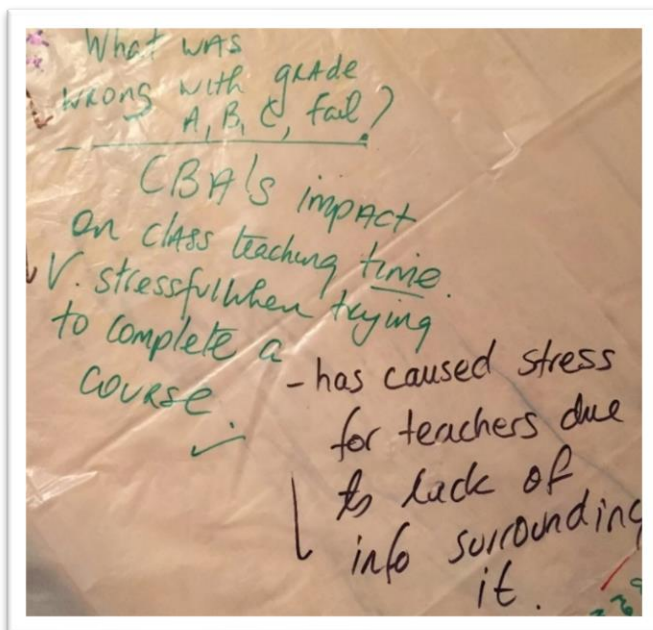 What was
wrong with grade
A, B, C, fail?
CBA's impact
on class teaching time.
V. stressful when trying
to complete a
course.
- has caused stress
for teachers due
to lack of
info surrounding
it.